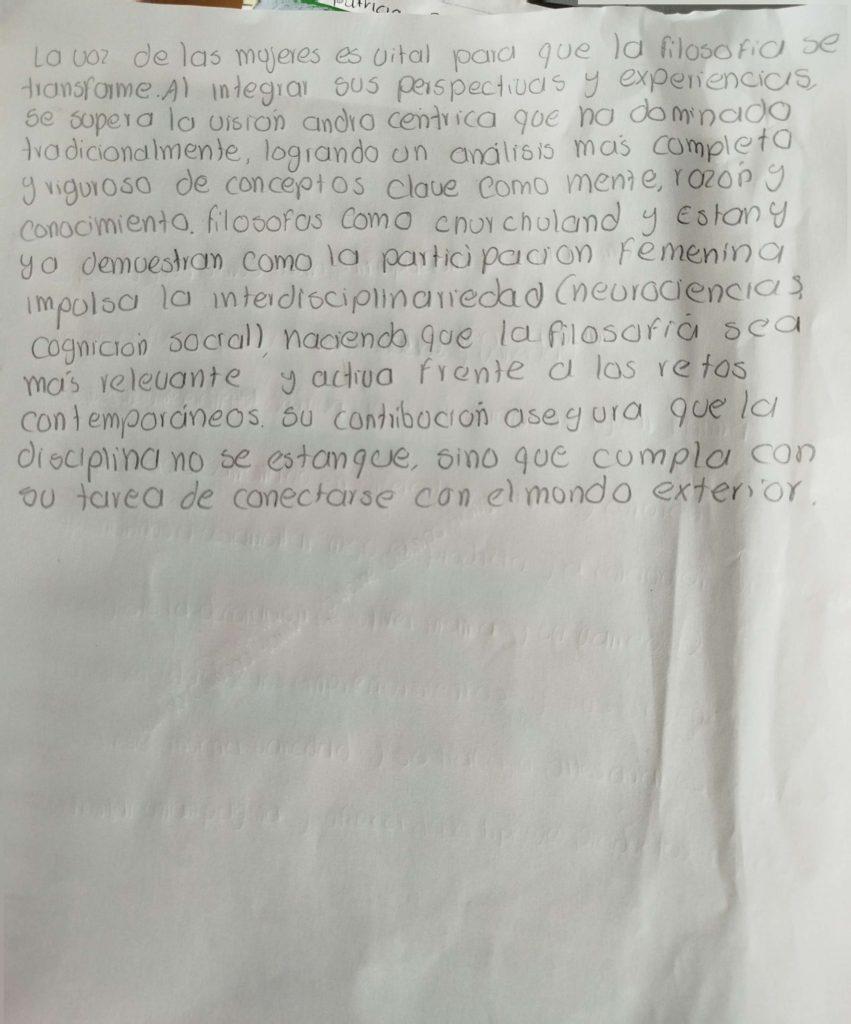 Patricia
La voz de las mujeres es vital para que la filosofia se
transforme. Al integrar sus perspectivas y experiencias,
se supera la visión andro centrica que ha dominado
tradicionalmente, logrando un análisis más completo
y riguroso de conceptos clave como mente, razón y
conocimiento. filosofas como churchuland y Estany
ya demuestran como la participación femenina
impulsa la interdisciplinariedad (neurociencias,
cognición social), haciendo que la filosofía sea
más relevante y activa frente a los retos
contemporáneos. Su contribución asegura que la
disciplina no se estanque, sino que cumpla con
su tarea de conectarse con el mondo exterior.